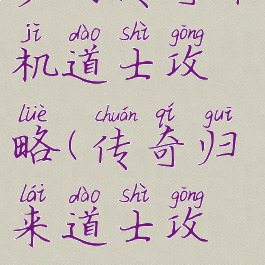 jī dào shì gōng
机道士攻
lüè chuán qí guī
略(传奇归
lái dào shì gōng
来道士攻